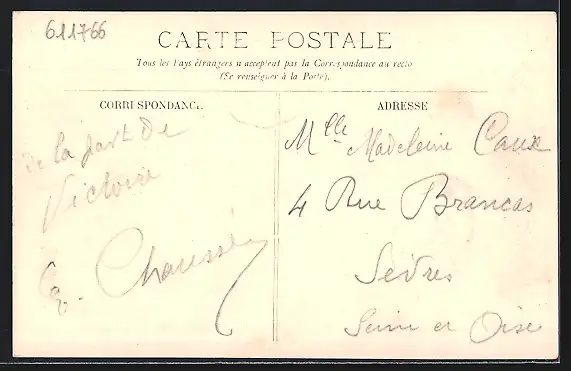 611766
CARTE POSTALE
Tous les Pays étrangers n'acceptent pas la Correspondance au recto
(Se renseigner à la Poste).
CORRESPONDANCE.
ADRESSE
De la part De
Victoire
E. Chaussé
Mlle Madeleine Caux
4 Rue Brancas
Sèvres
Seine et Oise